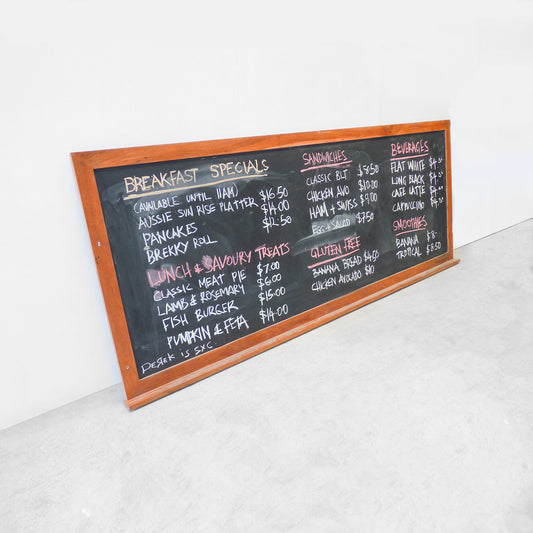 BREAKFAST SPECIALS
(AVAILABLE UNTIL 11AM)
AUSSIE SUN RISE PLATTER $16.50
PANCAKES $14.00
BREKKY ROLL $12.50
LUNCH & SAVOURY TREATS
CLASSIC MEAT PIE $7.00
LAMB & ROSEMARY $6.00
FISH BURGER $15.00
PUMPKIN & FETA $14.00
DEREK IS SXC.
SANDWICHES
CLASSIC BLT $8.50
CHICKEN AVO $10.00
HAM + SWISS $9.00
EGG + SALAD $7.50
GLUTEN FREE
BANANA BREAD $4.50
CHICKEN AVOCADO $10
BEVERAGES
FLAT WHITE
LONG BLACK
CAFE LATTE
CAPPICCINO
SMOOTHIES
BANANA $8.
TROPICAL $8.50